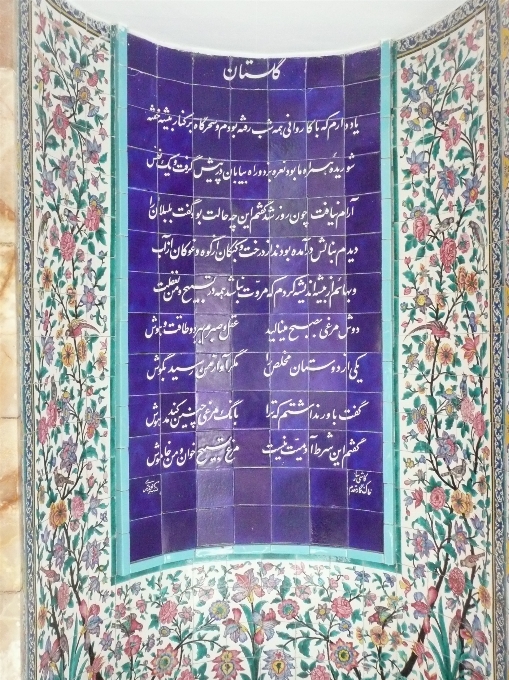 گلستان
یاد دارم که با کاروانی همه شب رفته بودم و سحرگاه بر کنار بیشه خفته
شوریده همراه ما بود نعره برزد و راه بیابان در پیش گرفت و یک نفس
آرام نیافت چون روز شد گفتم این چه حالت بود گفت بلبلان را
دیدم بنالش درآمده بودند از درخت و کبکان از کوه و غوکان از آب
و بهائم از بیشه اندیشه کردم که مروت نباشد همه در تسبیح و من بغفلت
دوش مرغی بصبح مینالید عقل و صبرم ببرد و طاقت و هوش
یکی از دوستان مخلص را مگر آواز من رسید بگوش
گفت باور نداشتم که ترا بانگ مرغی چنین کند مدهوش
گفتم این شرط آدمیت نیست مرغ تسبیح خوان و من خاموش